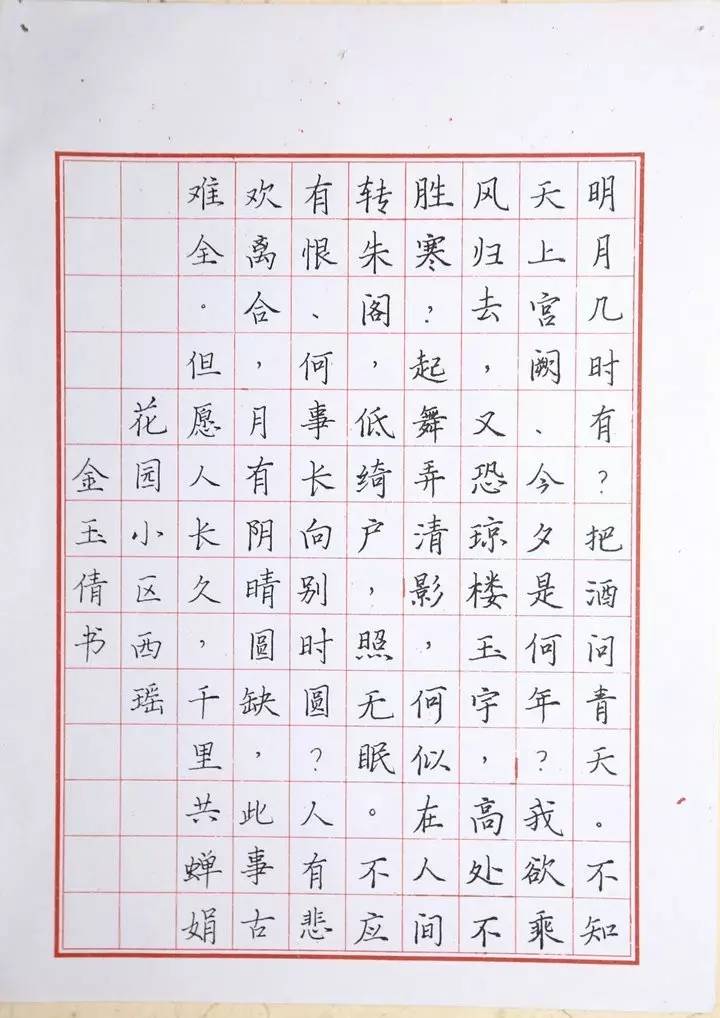 明月几时有?把酒问青天。不知
天上宫阙、今夕是何年?我欲乘
风归去,又恐琼楼玉宇,高处不
胜寒?起舞弄清影,何似在人间
转朱阁,低绮户,照无眠。不应
有恨、何事长向别时圆?人有悲
欢离合,月有阴晴圆缺,此事古
难全。但愿人长久,千里共蝉娟
花园小区西瑶
金玉倩书